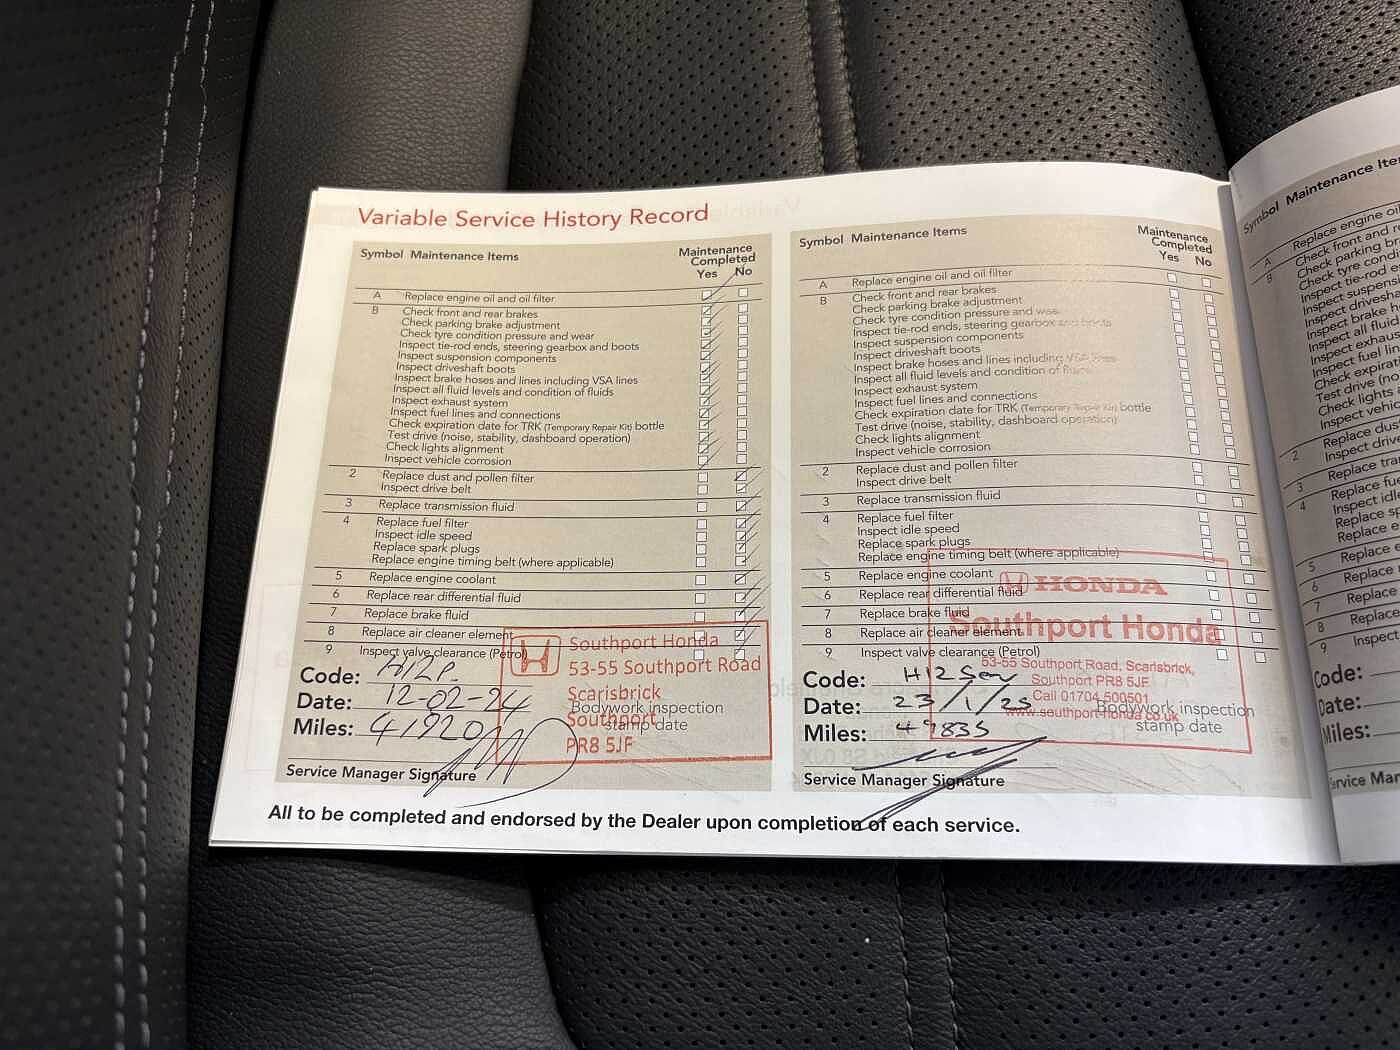 Variable Service History Record
Symbol Maintenance Items
Maintenance
Completed
Yes No
A Replace engine oil and oil filter
B Check front and rear brakes
Check parking brake adjustment
Check tyre condition pressure and wear
Inspect tie-rod ends, steering gearbox and boots
Inspect suspension components
Inspect driveshaft boots
Inspect brake hoses and lines including VSA lines
Inspect all fluid levels and condition of fluids
Inspect exhaust system
Inspect fuel lines and connections
Check expiration date for TRK (Temporary Repair Kit) bottle
Test drive (noise, stability, dashboard operation)
Check lights alignment
Inspect vehicle corrosion
2 Replace dust and pollen filter
Inspect drive belt
3 Replace transmission fluid
4 Replace fuel filter
Inspect idle speed
Replace spark plugs
Replace engine timing belt (where applicable)
5 Replace engine coolant
6 Replace rear differential fluid
7 Replace brake fluid
8 Replace air cleaner element
9 Inspect valve clearance (Petrol)
Code:
Date: 12-02-24
Miles: 41920
Southport Honda
53-55 Southport Road
Scarisbrick
Southport
PR8 5JF
Bodywork inspection
stamp date
Service Manager Signature
Symbol Maintenance Items
Maintenance
Completed
Yes No
A Replace engine oil and oil filter
B Check front and rear brakes
Check parking brake adjustment
Check tyre condition pressure and wear
Inspect tie-rod ends, steering gearbox and boots
Inspect suspension components
Inspect driveshaft boots
Inspect brake hoses and lines including VSA lines
Inspect all fluid levels and condition of fluids
Inspect exhaust system
Inspect fuel lines and connections
Check expiration date for TRK (Temporary Repair Kit) bottle
Test drive (noise, stability, dashboard operation)
Check lights alignment
Inspect vehicle corrosion
2 Replace dust and pollen filter
Inspect drive belt
3 Replace transmission fluid
4 Replace fuel filter
Inspect idle speed
Replace spark plugs
Replace engine timing belt (where applicable)
5 Replace engine coolant
6 Replace rear differential fluid
7 Replace brake fluid
8 Replace air cleaner element
9 Inspect valve clearance (Petrol)
HONDA
Southport Honda
53-55 Southport Road, Scarisbrick,
Southport PR8 5JF
Call 01704 500501
www.southport-honda.co.uk
Code:
Date: 23/1/25
Miles: 49835
Bodywork inspection
stamp date
Service Manager Signature
All to be completed and endorsed by the Dealer upon completion of each service.
Symbol Maintenance
A Replace engine
B Check front and
Check parking
Check tyre
Inspect tie-rod
Inspect
Inspect
Inspect brake
Inspect all
Inspect
Inspect fuel
Check
Test drive
Check lights
Inspect
2 Replace
Inspect
3 Replace
4 Replace
Inspect
Replace
Replace
5 Replace
6 Replace
7 Replace
8 Replace
9 Inspect
Code:
Date:
Miles: